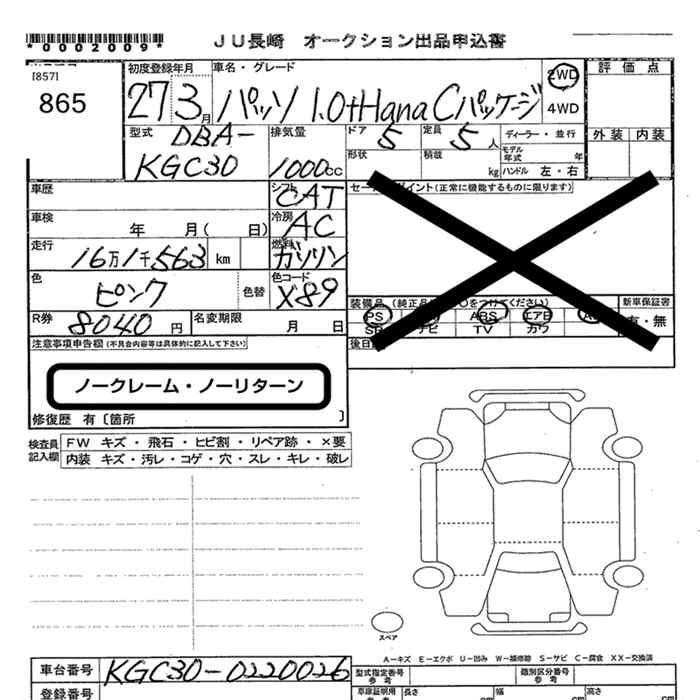 *0002009*
JU長崎 オークション出品申込書
[857]
865
初度登録年月
27 3月
車名・グレード
パッソ 1.0+Hana Cパッケージ
2WD
4WD
評価点
外装 内装
型式
DBA-
KGC30
排気量
1000cc
ドア
5
定員
5人
ディーラー・並行
形状
積載
kg
モデル年式
年
ハンドル 左・右
車歴
シフト
CAT
車検
年 月( 日)
冷房
AC
走行
16万1千563 km
燃料
ガソリン
色
ピンク
色替
色コード
X89
R券
8040 円
名変期限
月 日
装備品
PS
ABS
エアB
TV
カワ
新車保証書
有・無
注意事項申告欄(不具合内容等は具体的に記入して下さい)
ノークレーム・ノーリターン
修復歴 有〔箇所 〕
検査員記入欄
FW キズ・飛石・ヒビ割・リペア跡・×要
内装 キズ・汚レ・コゲ・穴・スレ・キレ・破レ
スペア
A-キズ E-エクボ U-凹み W-補修跡 S-サビ C-腐食 XX-交換済
車台番号
KGC30-0220026
型式指定番号
参考
類別区分番号
参考
登録番号
車庫証明用
参考
長さ
cm
幅
cm
高さ
cm